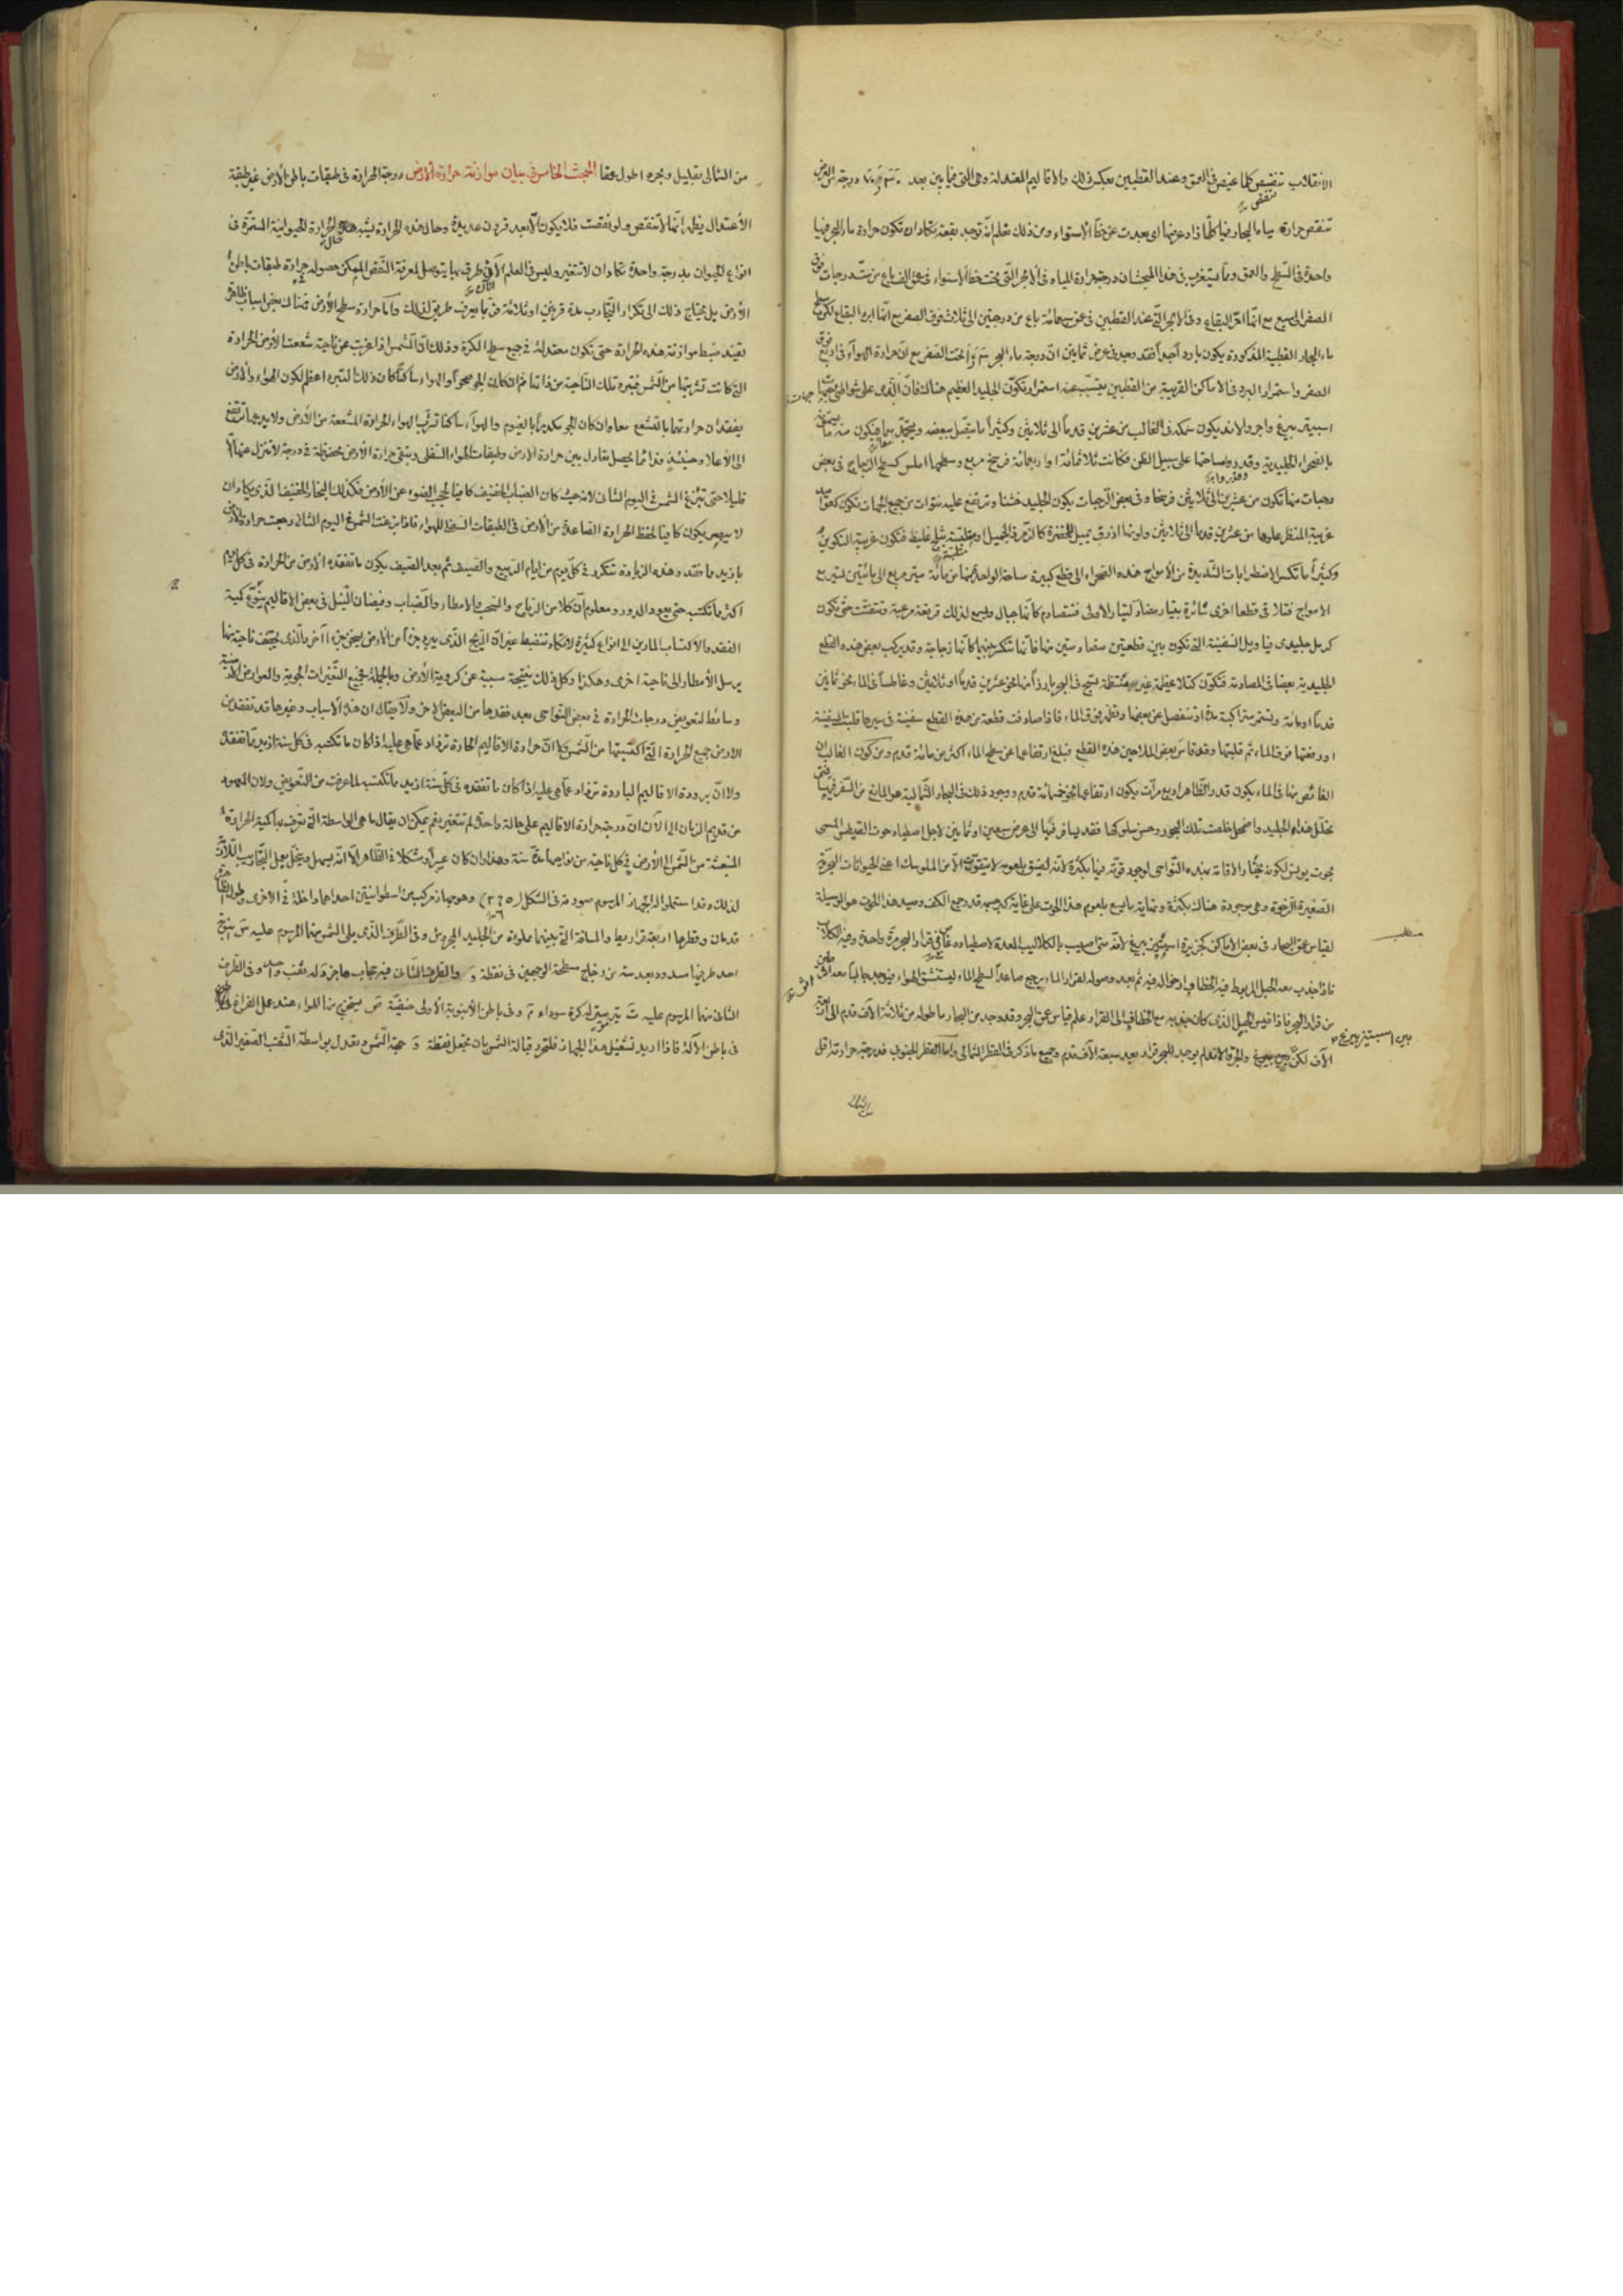 الانقلاب تنقص كلما غيص فى العمق وعند القطبين بعكس ذلك والاقاليم المعتدلة وهى التى فيما بين بعد درجة من العرض
تنقص حرارة مياه البحار فيها كلما زاد عرضها اى بعدت عن خط الاستواء ومن ذلك تعلم انه توجد بقعة تكاد ان تكون حرارة ماء البحر فيها
واحدة فى السطح والعمق ومما يستغرب فى هذا المبحث ان درجة حرارة المياه فى الابحر التى تحت خط الاستواء فى عمق الف باع من ستة درجات فوق
الصفر الى سبع مع انها احر البقاع وفى الابحر التى عند القطبين فى عمق سبعمائة باع من درجتين الى ثلاث فوق الصفر مع انها ابرد البقاع لكن سطح
ماء البحار القطبية المذكورة يكون باردا جدا فقد وجد فى عرض ثمانين ان درجة ماء البحر تحت الصفر مع ان حرارة الهواء فى اربع فوق
الصفر واستمرار البرد فى الاماكن القريبة من القطبين يتسبب عنه استمرار تكون الجليد العظيم هناك فان الذى على شواطئ
اسبيتزبيرغ واجروالاند يكون سمكه فى الغالب من عشرين قدما الى ثلاثين وكثيرا ما يتصل ببعضه ويتجمد بها فيكون منه ما يسمى
بالصحراء الجليدية وقدروا مساحتها على سبيل الظن فكانت ثلاثمائة او اربعمائة فرسخ مربع وسطحها املس كسطح الزجاج فى بعض
درجات منها تكون من عشرين الى ثلاثين فرسخا وفى بعض الدرجات يكون الجليد خشنا وترتفع عليه نتوات من جميع الجهات تكون كعواميد
غريبة المنظر علوها من عشرين قدما الى ثلاثين ولونها ازرق يميل للخضرة كالزمرد الجميل ثلج غليظ فتكون غريبة التكوين
وكثيرا ما تكسر الاضطرابات الشديدة من الامواج هذه الصحراء الى قطع كبيرة مساحة الواحدة منها من مائة ميتر مربع الى مائتين لتسريع
الامواج فتلاقى قطعا اخرى سائرة بتيار مضاد لتيار الاولى فتتصادم كانها جبال ويسمع لذلك قرقعة مرعبة فتتفتت حتى تكون
كرمل جليدى فيا ويل السفينة التى تكون بين قطعتين متضادتين منها فانها تنكسر بينهما كانها زجاجة وقد يركب بعض هذه القطع
الجليدية بعضها فى المصادمة فتكون كتلا عظيمة غير منتظمة تسبح فى البحر بارزا منها نحو عشرين قدما او ثلاثين وغاطسا فى الماء نحو ثمانين
قدما او مائة وتستمر متراكبة مدة او تنفصل عن بعضها وتظهر فوق الماء فاذا صادفت قطعة من هذه القطع سفينة فى سيرها قلبت السفينة
او رفعتها فوق الماء ثم قلبتها وقد قاس بعض الملاحين هذه القطع فبلغ ارتفاعها عن سطح الماء اكثر من مائة قدم ومن كون الغالب ان
الغائص منها فى الماء يكون قدر الظاهر اربع مرات يكون ارتفاعها نحو خمسمائة قدم ووجود ذلك فى البحار الشمالية هو المانع من السفر فيها فمتى
تحلل هذا الجليد واضمحل خلصت تلك البحور وحسن سلوكها فقد يسافر فيها الى عرض سبعين او ثمانين لاجل اصطياد حوت القيطس المسمى
بحوت يونس لكونه يختار الاقامة بهذه النواحى لوجود قوته فيها بكثرة لانه لضيق بلعومه لا يتقوت الا من الملوسك اعنى الحيوانات البحرية
الصغيرة الرخوة وهى موجودة هناك بكثرة ونهاية ما يسع بلعوم هذا الحوت على غاية كبر جسمه قدر جمع الكف وصيد هذا الحوت هو الوسيلة
لقياس عمق البحار فى بعض الاماكن كجزيرة اسبيتزبيرغ لانه متى اصيب بالكلاليب المعدة لاصطياده غاص فى قرار البحر مرة واحدة وفيه الكلاب
فاذا جذب بعد الحبل المربوط فيه الخطاف ادخاله فيه ثم بعد وصوله لقرار الماء يرجع صاعدا لسطح الماء ليستنشق الهواء فيوجد جالبا معه طين
من قرار البحر فاذا قيس الحبل الذى كان جذبه مع الخطاف الى القرار علم قياس عمق البحر وقد وجد من البحار ما طوله من ثلاثة الاف قدم الى اربعة
الاف لكن والجروالاند لم يوجد للبحر قرار بعد سبعة الاف قدم وجميع ما ذكر فى القطر الشمالى واما القطر الجنوبى فدرجة حرارته اقل
بين اسبيتزبيرغ
مطلب
جهات
من الشمالى بقليل وبحره اطول عمقا المبحث الخامس فى بيان موازنة حرارة الارض درجة الحرارة فى طبقات باطن الارض غير طبقة
الاعتدال يظهر انها لا تنقص ولو نقصت فلا يكون الا بعد قرون عديدة وحال هذه الحرارة يشبه حال الحرارة الحيوانية المستمرة فى
انواع الحيوان بدرجة واحدة تكاد ان لا تتغير وليس فى العلم الان طرق بها يتوصل لمعرفة النقص الممكن حصوله فى حرارة طبقات باطن
الارض بل يحتاج ذلك الى تكرار التجارب مدة قرنين او ثلاثة فربما يعرف طريق لذلك واما حرارة سطح الارض فهناك بعض اسباب ظاهرة
تفيد ضبط موازنة هذه الحرارة حتى تكون معتدلة فى جميع سطح الكرة وذلك ان الشمس اذا غربت عن ناحية شععت الارض الحرارة
التى كانت تشربتها من الشمس فتبرد تلك الناحية من ذاتها ثم ان كان الجو صحوا والهواء ساكنا كان ذلك التبرد اعظم لكون الهواء والارض
يفقدان حرارتهما بالتشعع معا وان كان الجو مكدرا بالغيوم والهواء ساكنا تشرب الهواء الحرارة المشععة من الارض ولا يدعها ترتفع
الى الاعلا وحينئذ فدائما يحصل تعادل بين حرارة الارض وطبقات الهواء السفلى وتبقى حرارة الارض محفوظة فى درجة لا تنزل عنها الا
قليلا حتى تبزغ الشمس فى اليوم الثانى لانه حيث كان الضباب الخفيف كافيا لحجب الضوء عن الارض فكذلك البخار الخفيف الذى يكاد ان
لا يبصر يكون كافيا لحفظ الحرارة الصاعدة من الارض فى الطبقات السفلى للهواء فاذا بزغت الشمس فى اليوم الثانى رجعت حرارة الارض
بازيد ما فقد وهذه الزيادة تتكرر فى كل يوم من ايام الربيع والصيف ثم بعد الصيف يكون ما تفقده الارض من الحرارة فى كل يوم
اكثر ما تكتسبه حتى يعود الدور ومعلوم ان كلا من الرياح والسحب والامطار والضباب وفيضان النيل فى بعض الاقاليم ينوع كمية
الفقد والاكتساب المارين الى انواع كثيرة لا تكاد تنضبط غير ان الريح الذى يبرد جزءا من الارض يسخن جزءا آخر والذى يجفف ناحية منها
يرسل الامطار الى ناحية اخرى وهكذا وكل ذلك نتيجة سببية عن كروية الارض وبالجملة فجميع التغيرات الجوية والعوارض
وسائط لتعويض درجات الحرارة فى بعض النواحى بعد فقدها من البعض الاخر ولا يقال ان هذه الاسباب وغيرها قد تفقد من
الارض جميع الحرارة التى اكتسبتها من الشمس ولا ان حرارة الاقاليم الحارة تزداد عما هى عليه اذا كان ما تكتسبه فى كل سنة ازيد مما تفقده
ولا ان برودة الاقاليم الباردة تزداد عما هى عليه اذا كان ما تفقده فى كل سنة ازيد ما تكتسبه لما عرفت من التعويض ولان المعهود
من قديم الزمان الى الآن ان درجة حرارة الاقاليم على حالة واحدة لم تتغير نعم يمكن ان يقال ما هى الواسطة التى تعرف بها كمية الحرارة
المنبعثة من الشمس الى الارض فى كل ناحية من نواحيها مدة سنة وهذا وان كان عسرا ومشكلا فى الظاهر الا انه يسهل وينحل بعمل التجارب اللازمة
لذلك وقد استعملوا له الجهاز المرسوم صورته فى الشكل وهو جهاز مركب من اسطوانتين احداهما داخلة فى الاخرى وطول
قدمان وقطرها اربعة قراريط والمسافة التى بينهما مملوءة من الجليد المجروش وفى الطرف الذى يلى الشمس منهما المرسوم عليه
احد طرفيها مسدود بعدسة من زجاج مسطحة الوجهين فى نقطة والطرف الثانى فيه حجاب حاجز له ثقب واحد وفى الطرف
الثانى منهما المرسوم عليه ت تيرموميتر له كرة سوداء وفى باطن الانبوبة الاولى حنفية يستخرج منها الهواء عند عمل الفراغ
فى باطن الآلة فاذا اريد تشغيل هذا الجهاز فلتحرر قبالة الشمس بان تجعل نقطة جهة الشمس وتعدل بواسطة الثقب الصغير الذى